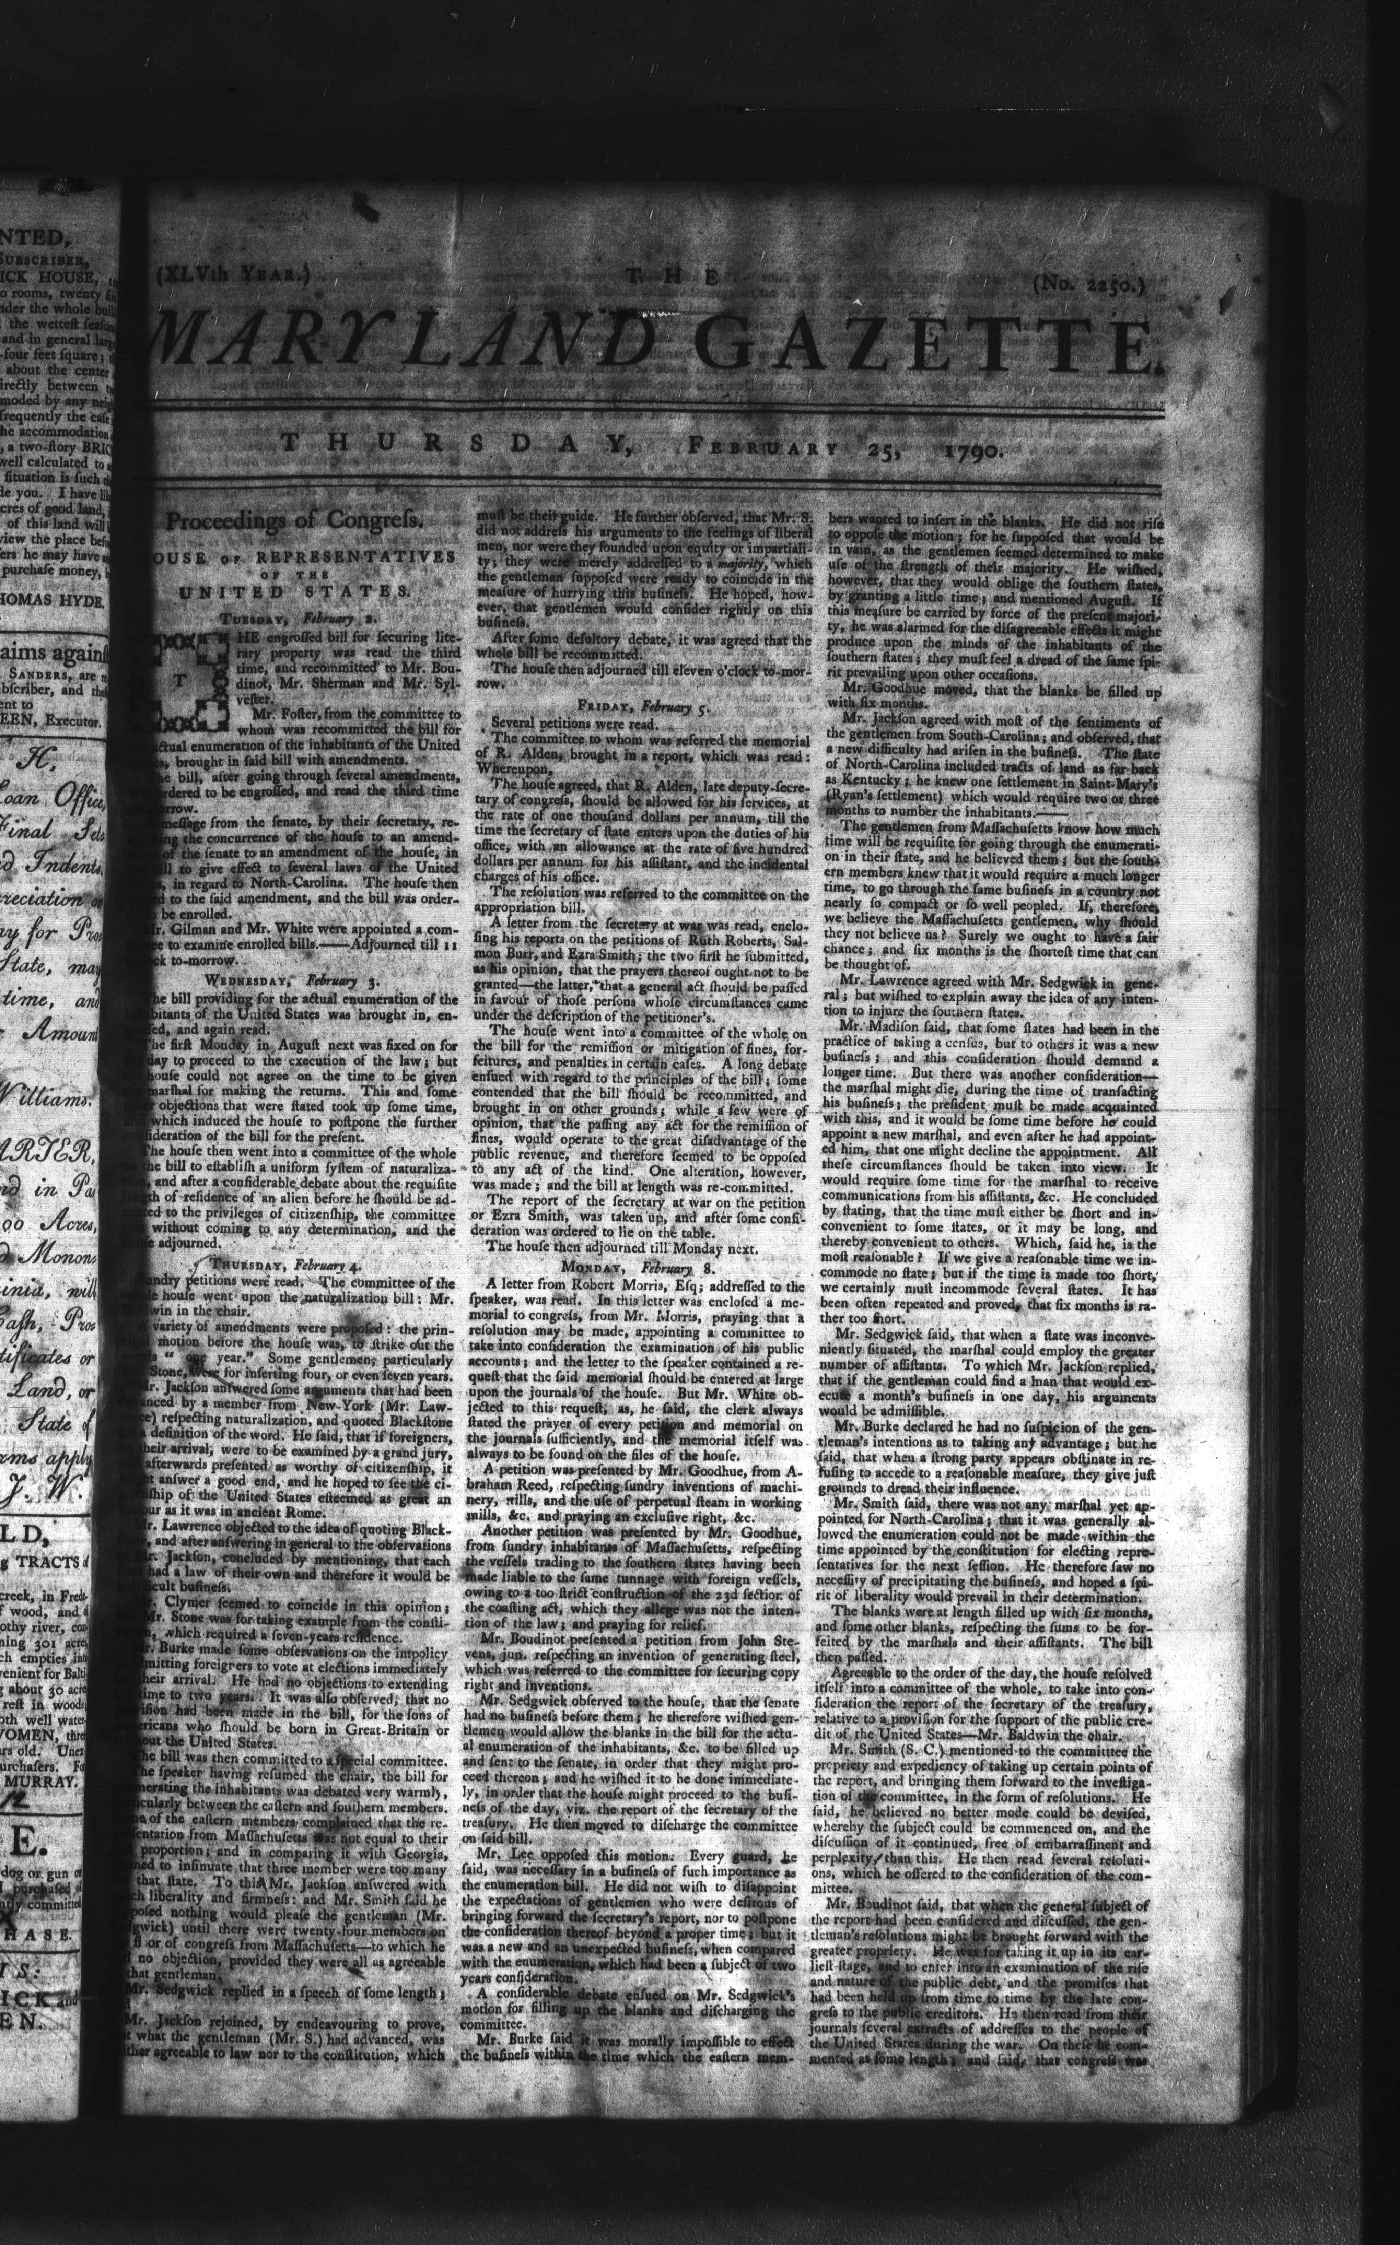 NTED,
SUBSCRIBER,
ICK HOUSE,
o rooms, twenty
nder the whole
the wetteſt ſeaſon
and in general
-four feet ſquare;
about the center
irectly between
moded by any
frequently the caſe
he accommodation
, a two-ſtory BRIC
well calculated to
ſituation is ſuch
de you. I have
cres of good land,
of this land will
view the place
ers he may have
purchaſe money,
HOMAS HYDE.
aims againſt
SANDERS, are
bſcriber, and
ent to
EEN, Executor.
H,
Loan Office,
Final
d Indents,
reciation
ay for
State, may
time, and
Amount
Williams.
ARTER,
nd in
00 Acres,
d
inia, will
Caſh,
tificates or
Land, or
State of
rms apply
J. W.
LD,
TRACTS
creek, in
f wood, and
othy river,
ning 301
ch empties
venient for
about 30
reſt in woods,
oth well
WOMEN,
rs old.
urchaſers.
MURRAY.
E.
dog or gun
purchaſed
ntly committed
HASE.
ICK and
EN.
(XLVth YEAR.)
THE
(No. 2250.)
MARYLAND GAZETTE.
THURSDAY, FEBRUARY 25, 1790.
Proceedings of Congreſs.
OUSE OF REPRESENTATIVES
OF THE
UNITED STATES.
TUESDAY, February 2.
THE engroſſed bill for ſecuring lite-
rary property was read the third
time, and recommitted to Mr. Bou-
dinot, Mr. Sherman and Mr. Syl-
veſter.
Mr. Foſter, from the committee to
whom was recommitted the bill for
actual enumeration of the inhabitants of the United
, brought in ſaid bill with amendments.
The bill, after going through ſeveral amendments,
ordered to be engroſſed, and read the third time
morrow.
meſſage from the ſenate, by their ſecretary, re-
the concurrence of the houſe to an amend-
of the ſenate to an amendment of the houſe, in
bill to give effect to ſeveral laws of the United
, in regard to North-Carolina. The houſe then
to the ſaid amendment, and the bill was order-
be enrolled.
Mr. Gilman and Mr. White were appointed a com-
to examine enrolled bills.——Adjourned till 11
to-morrow.
WEDNESDAY, February 3.
The bill providing for the actual enumeration of the
inhabitants of the United States was brought in, en-
, and again read.
The firſt Monday in Auguſt next was fixed on for
day to proceed to the execution of the law; but
houſe could not agree on the time to be given
marſhal for making the returns. This and ſome
objections that were ſtated took up ſome time,
which induced the houſe to poſtpone the further
conſideration of the bill for the preſent.
The houſe then went into a committee of the whole
the bill to eſtabliſh a uniform ſyſtem of naturaliza-
, and after a conſiderable debate about the requiſite
length of reſidence of an alien before he ſhould be ad-
to the privileges of citizenſhip, the committee
without coming to any determination, and the
adjourned.
THURSDAY, February 4.
Sundry petitions were read. The committee of the
houſe went upon the naturalization bill: Mr.
in the chair.
variety of amendments were propoſed: the prin-
motion before the houſe was, to ſtrike out the
“ one year.” Some gentlemen, particularly
Stone, were for inſerting four, or even ſeven years.
Mr. Jackſon anſwered ſome arguments that had been
advanced by a member from New-York (Mr. Law-
) reſpecting naturalization, and quoted Blackſtone
definition of the word. He ſaid, that if foreigners,
their arrival, were to be examined by a grand jury,
afterwards preſented as worthy of citizenſhip, it
anſwer a good end, and he hoped to ſee the ci-
of the United States eſteemed as great an
as it was in ancient Rome.
Mr. Lawrence objected to the idea of quoting Black-
, and after anſwering in general to the obſervations
Mr. Jackſon, concluded by mentioning, that each
had a law of their own and therefore it would be
difficult buſineſs.
Clymer ſeemed to coincide in this opinion;
Mr. Stone was for taking example from the conſti-
, which required a ſeven-years reſidence.
Burke made ſome obſervations on the impolicy
admitting foreigners to vote at elections immediately
their arrival. He had no objections to extending
time to two years. It was alſo obſerved, that no
had been made in the bill, for the ſons of
who ſhould be born in Great-Britain or
the United States.
The bill was then committed to a ſpecial committee.
The ſpeaker having reſumed the chair, the bill for
enumerating the inhabitants was debated very warmly,
particularly between the eaſtern and ſouthern members.
of the eaſtern members complained that the re-
from Maſſachuſetts was not equal to their
proportion; and in comparing it with Georgia,
to inſinuate that three member were too many
that ſtate. To this Mr. Jackſon anſwered with
liberality and firmneſs: and Mr. Smith ſaid he
nothing would pleaſe the gentleman (Mr.
) until there were twenty-four members on
or of congreſs from Maſſachuſetts—to which he
no objection, provided they were all as agreeable
that gentleman.
Mr. Sedgwick replied in a ſpeech of ſome length;
Mr. Jackſon rejoined, by endeavouring to prove,
what the gentleman (Mr. S.) had advanced, was
agreeable to law nor to the conſtitution, which
muſt be their guide. He further obſerved, that Mr. S.
did not addreſs his arguments to the feelings of liberal
men, nor were they founded upon equity or impartiali-
ty; they were merely addreſſed to a majority, which
the gentleman ſuppoſed were ready to coincide in the
meaſure of hurrying this buſineſs. He hoped, how-
ever, that gentlemen would conſider rightly on this
buſineſs.
After ſome deſultory debate, it was agreed that the
whole bill be recommitted.
The houſe then adjourned till eleven o'clock to-mor-
row.
FRIDAY, February 5.
Several petitions were read.
The committee to whom was referred the memorial
of R. Alden, brought in a report, which was read:
Whereupon,
The houſe agreed, that R. Alden, late deputy-ſecre-
tary of congreſs, ſhould be allowed for his ſervices, at
the rate of one thouſand dollars per annum, till the
time the ſecretary of ſtate enters upon the duties of his
office, with an allowance at the rate of five hundred
dollars per annum for his aſſiſtant, and the incidental
charges of his office.
The reſolution was referred to the committee on the
appropriation bill.
A letter from the ſecretary at war was read, encloſ-
ſing his reports on the petitions of Ruth Roberts, Sal-
mon Burr, and Ezra Smith; the two firſt he ſubmitted,
as his opinion, that the prayers thereof ought not to be
granted—the latter, that a general act ſhould be paſſed
in favour of thoſe perſons whoſe circumſtances came
under the deſcription of the petitioner's.
The houſe went into a committee of the whole on
the bill for the remiſſion or mitigation of fines, for-
feitures, and penalties in certain caſes. A long debate
enſued with regard to the principles of the bill; ſome
contended that the bill ſhould be recommitted, and
brought in on other grounds; while a few were of
opinion, that the paſſing any act for the remiſſion of
fines, would operate to the great diſadvantage of the
public revenue, and therefore ſeemed to be oppoſed
to any act of the kind. One alteration, however,
was made; and the bill at length was re-committed.
The report of the ſecretary at war on the petition
or Ezra Smith, was taken up, and after ſome conſi-
deration was ordered to lie on the table.
The houſe then adjourned till Monday next.
MONDAY, February 8.
A letter from Robert Morris, Eſq; addreſſed to the
ſpeaker, was read. In this letter was encloſed a me-
morial to congreſs, from Mr. Morris, praying that a
reſolution may be made, appointing a committee to
take into conſideration the examination of his public
accounts; and the letter to the ſpeaker contained a re-
queſt that the ſaid memorial ſhould be entered at large
upon the journals of the houſe. But Mr. White ob-
jected to this requeſt, as, he ſaid, the clerk always
ſtated the prayer of every petition and memorial on
the journals ſufficiently, and the memorial itſelf was
always to be found on the files of the houſe.
A petition was preſented by Mr. Goodhue, from A-
braham Reed, reſpecting ſundry inventions of machi-
nery, mills, and the uſe of perpetual ſteam in working
mills, &c. and praying an excluſive right, &c.
Another petition was preſented by Mr. Goodhue,
from ſundry inhabitants of Maſſachuſetts, reſpecting
the veſſels trading to the ſouthern ſtates having been
made liable to the ſame tunnage with foreign veſſels,
owing to a too ſtrict conſtruction of the 23d ſection of
the coaſting act, which they allege was not the inten-
tion of the law; and praying for relief.
Mr. Boudinot preſented a petition from John Ste-
vens, jun. reſpecting an invention of generating ſteel,
which was referred to the committee for ſecuring copy
right and inventions.
Mr. Sedgwick obſerved to the houſe, that the ſenate
had no buſineſs before them; he therefore wiſhed gen-
tlemen would allow the blanks in the bill for the actu-
al enumeration of the inhabitants, &c. to be filled up
and ſent to the ſenate, in order that they might pro-
ceed thereon; and he wiſhed it to be done immediate-
ly, in order that the houſe might proceed to the buſi-
neſs of the day, viz. the report of the ſecretary of the
treaſury. He then moved to diſcharge the committee
on ſaid bill.
Mr. Lee oppoſed this motion. Every guard, he
ſaid, was neceſſary in a buſineſs of ſuch importance as
the enumeration bill. He did not wiſh to diſappoint
the expectations of gentlemen who were deſirous of
bringing forward the ſecretary's report, nor to poſtpone
the conſideration thereof beyond a proper time; but it
was a new and an unexpected buſineſs, when compared
with the enumeration, which had been a ſubject of two
years conſideration.
A conſiderable debate enſued on Mr. Sedgwick's
motion for filling up the blanks and diſcharging the
committee.
Mr. Burke ſaid it was morally impoſſible to effect
the buſineſs within the time which the eaſtern mem-
bers wanted to inſert in the blanks. He did not riſe
to oppoſe the motion; for he ſuppoſed that would be
in vain, as the gentlemen ſeemed determined to make
uſe of the ſtrength of their majority. He wiſhed,
however, that they would oblige the ſouthern ſtates,
by granting a little time; and mentioned Auguſt. If
this meaſure be carried by force of the preſent majori-
ty, he was alarmed for the diſagreeable effects it might
produce upon the minds of the inhabitants of the
ſouthern ſtates; they muſt feel a dread of the ſame ſpi-
rit prevailing upon other occaſions.
Mr. Goodhue moved, that the blanks be filled up
with ſix months.
Mr. Jackſon agreed with moſt of the ſentiments of
the gentlemen from South-Carolina; and obſerved, that
a new difficulty had ariſen in the buſineſs. The ſtate
of North-Carolina included tracts of land as far back
as Kentucky; he knew one ſettlement in Saint-Mary's
(Ryan's ſettlement) which would require two or three
months to number the inhabitants.——
The gentlemen from Maſſachuſetts know how much
time will be requiſite for going through the enumerati-
on in their ſtate, and he believed them; but the ſouth-
ern members knew that it would require a much longer
time, to go through the ſame buſineſs in a country not
nearly ſo compact or ſo well peopled. If, therefore,
we believe the Maſſachuſetts gentlemen, why ſhould
they not believe us? Surely we ought to have a fair
chance; and ſix months is the ſhorteſt time that can
be thought of.
Mr. Lawrence agreed with Mr. Sedgwick in gene-
ral; but wiſhed to explain away the idea of any inten-
tion to injure the ſouthern ſtates.
Mr. Madiſon ſaid, that ſome ſtates had been in the
practice of taking a cenſus, but to others it was a new
buſineſs; and this conſideration ſhould demand a
longer time. But there was another conſideration—
the marſhal might die, during the time of tranſacting
his buſineſs; the preſident muſt be made acquainted
with this, and it would be ſome time before he could
appoint a new marſhal, and even after he had appoint-
ed him, that one might decline the appointment. All
theſe circumſtances ſhould be taken into view. It
would require ſome time for the marſhal to receive
communications from his aſſiſtants, &c. He concluded
by ſtating, that the time muſt either be ſhort and in-
convenient to ſome ſtates, or it may be long, and
thereby convenient to others. Which, ſaid he, is the
moſt reaſonable? If we give a reaſonable time we in-
commode no ſtate; but if the time is made too ſhort,
we certainly muſt incommode ſeveral ſtates. It has
been often repeated and proved, that ſix months is ra-
ther too ſhort.
Mr. Sedgwick ſaid, that when a ſtate was inconve-
niently ſituated, the marſhal could employ the greater
number of aſſiſtants. To which Mr. Jackſon replied,
that if the gentleman could find a man that would ex-
ecute a month's buſineſs in one day, his arguments
would be admiſſible.
Mr. Burke declared he had no ſuſpicion of the gen-
tleman's intentions as to taking any advantage; but he
ſaid, that when a ſtrong party appears obſtinate in re-
fuſing to accede to a reaſonable meaſure, they give juſt
grounds to dread their influence.
Mr. Smith ſaid, there was not any marſhal yet ap-
pointed for North-Carolina; that it was generally al-
lowed the enumeration could not be made within the
time appointed by the conſtitution for electing repre-
ſentatives for the next ſeſſion. He therefore ſaw no
neceſſity of precipitating the buſineſs, and hoped a ſpi-
rit of liberality would prevail in their determination.
The blanks were at length filled up with ſix months,
and ſome other blanks, reſpecting the ſums to be for-
feited by the marſhals and their aſſiſtants. The bill
then paſſed.
Agreeable to the order of the day, the houſe reſolved
itſelf into a committee of the whole, to take into con-
ſideration the report of the ſecretary of the treaſury,
relative to a proviſion for the ſupport of the public cre-
dit of the United States—Mr. Baldwin the chair.
Mr. Smith (S. C.) mentioned to the committtee the
propriety and expediency of taking up certain points of
the report, and bringing them forward to the inveſtiga-
tion of the committee, in the form of reſolutions. He
ſaid, he believed no better mode could be deviſed,
whereby the ſubject could be commenced on, and the
diſcuſſion of it continued, free of embarraſſment and
perplexity, than this. He then read ſeveral reſoluti-
ons, which he offered to the conſideration of the com-
mittee.
Mr. Boudinot ſaid, that when the general ſubject of
the report had been conſidered and diſcuſſed, the gen-
tleman's reſolutions might be brought forward with the
greater propriety. He was for taking it up in its ear-
lieſt ſtage, and to enter into an examination of the riſe
and nature of the public debt, and the promiſes that
had been held up from time to time by the late con-
greſs to the public creditors. He then read from their
journals ſeveral extracts of addreſſes to the people of
the United States during the war. On theſe he com-
mented at ſome length; and ſaid, that congreſs was